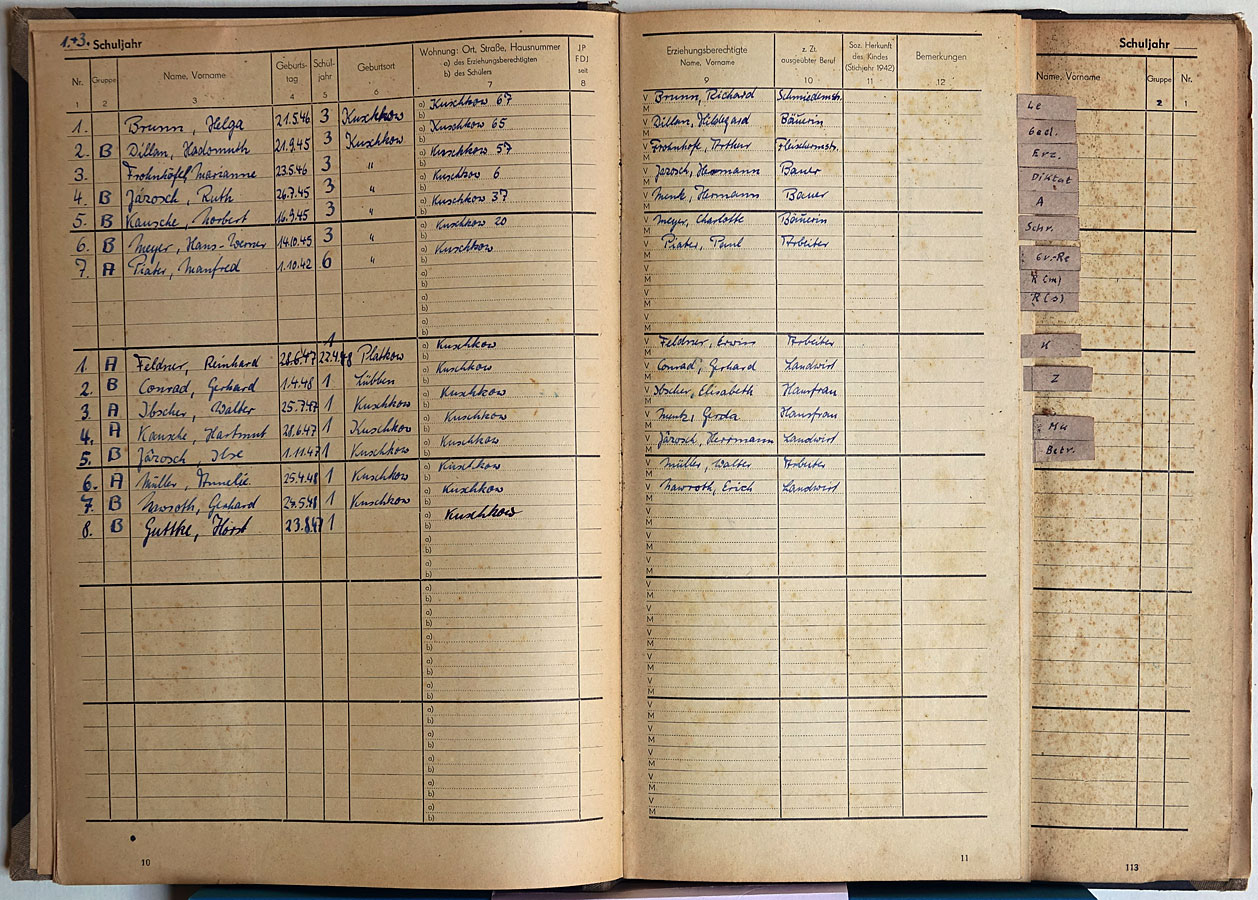 1.+3. Schuljahr
Nr. Gruppe Name, Vorname Geburts-tag Schul-jahr Geburtsort Wohnung: Ort, Straße, Hausnummer a) des Erziehungsberechtigten b) des Schülers JP FDJ seit
1 2 3 4 5 6 7 8
1. Brunn, Helga 21.5.46 3 Kuschkow a) Kuschkow 67
2. B Dillan, Hadomuth 21.9.45 3 Kuschkow Kuschkow 65
3. Frohnhöfel, Marianne 23.5.46 3 " Kuschkow 57
4. B Järosch, Ruth 26.7.45 3 " Kuschkow 6
5. B Kausche, Norbert 16.9.45 3 " Kuschkow 37
6. B Meyer, Hans-Werner 14.10.45 3 " Kuschkow 20
7. A Piater, Manfred 1.10.42 6 " Kuschkow
1. A Feldner, Reinhard 28.6.47 1 22.4.48 Platkow Kuschkow
2. B Conrad, Gerhard 1.4.48 1 Lübben Kuschkow
3. A Ibscher, Walter 25.7.47 1 Kuschkow Kuschkow
4. A Kausche, Hartmut 28.6.47 1 Kuschkow Kuschkow
5. B Järosch, Ilse 1.11.47 1 Kuschkow Kuschkow
6. A Müller, Annelie 25.4.48 1 Kuschkow Kuschkow
7. B Nawroth, Gerhard 24.5.48 1 Kuschkow Kuschkow
8. B Guttke, Horst 23.8.47 1 Kuschkow
10
Erziehungsberechtigte Name, Vorname z. Zt. ausgeübter Beruf Soz. Herkunft des Kindes (Stichjahr 1942) Bemerkungen
9 10 11 12
Brunn, Richard Schmiedemstr.
Dillan, Hildegard Bäuerin
Frohnhöfe, Arthur Fleischermstr.
Järosch, Hermann Bauer
Menk, Hermann Bauer
Meyer, Charlotte Bäuerin
Piater, Paul Arbeiter
Feldner, Erwin Arbeiter
Conrad, Gerhard Landwirt
Ibscher, Elisabeth Hausfrau
Mentz, Gerda Hausfrau
Järosch, Herrmann Landwirt
Müller, Walter Arbeiter
Nawroth, Erich Landwirt
11
Schuljahr
Name, Vorname Gruppe Nr.
2 1
Le
Ged.
Erz.
Diktat
A
Schr.
Gr.-Re
R(m)
R(s)
H
Z
Mu
Betr.
113